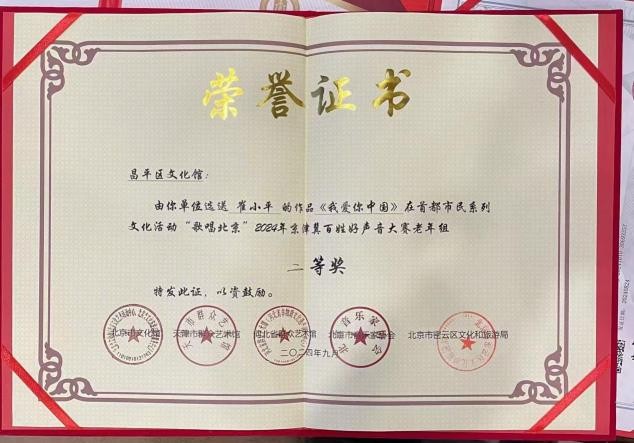 荣誉证书
昌平区文化馆：
由你单位选送 崔小平 的作品《我爱你中国》在首都市民系列
文化活动“歌唱北京”2024年京津冀百姓好声音大赛老年组
二等奖
特发此证，以资鼓励。
北京市文化馆 天津市群众艺术馆 河北省群众艺术馆 北京市音乐家协会 北京市密云区文化和旅游局
二〇二四年九月